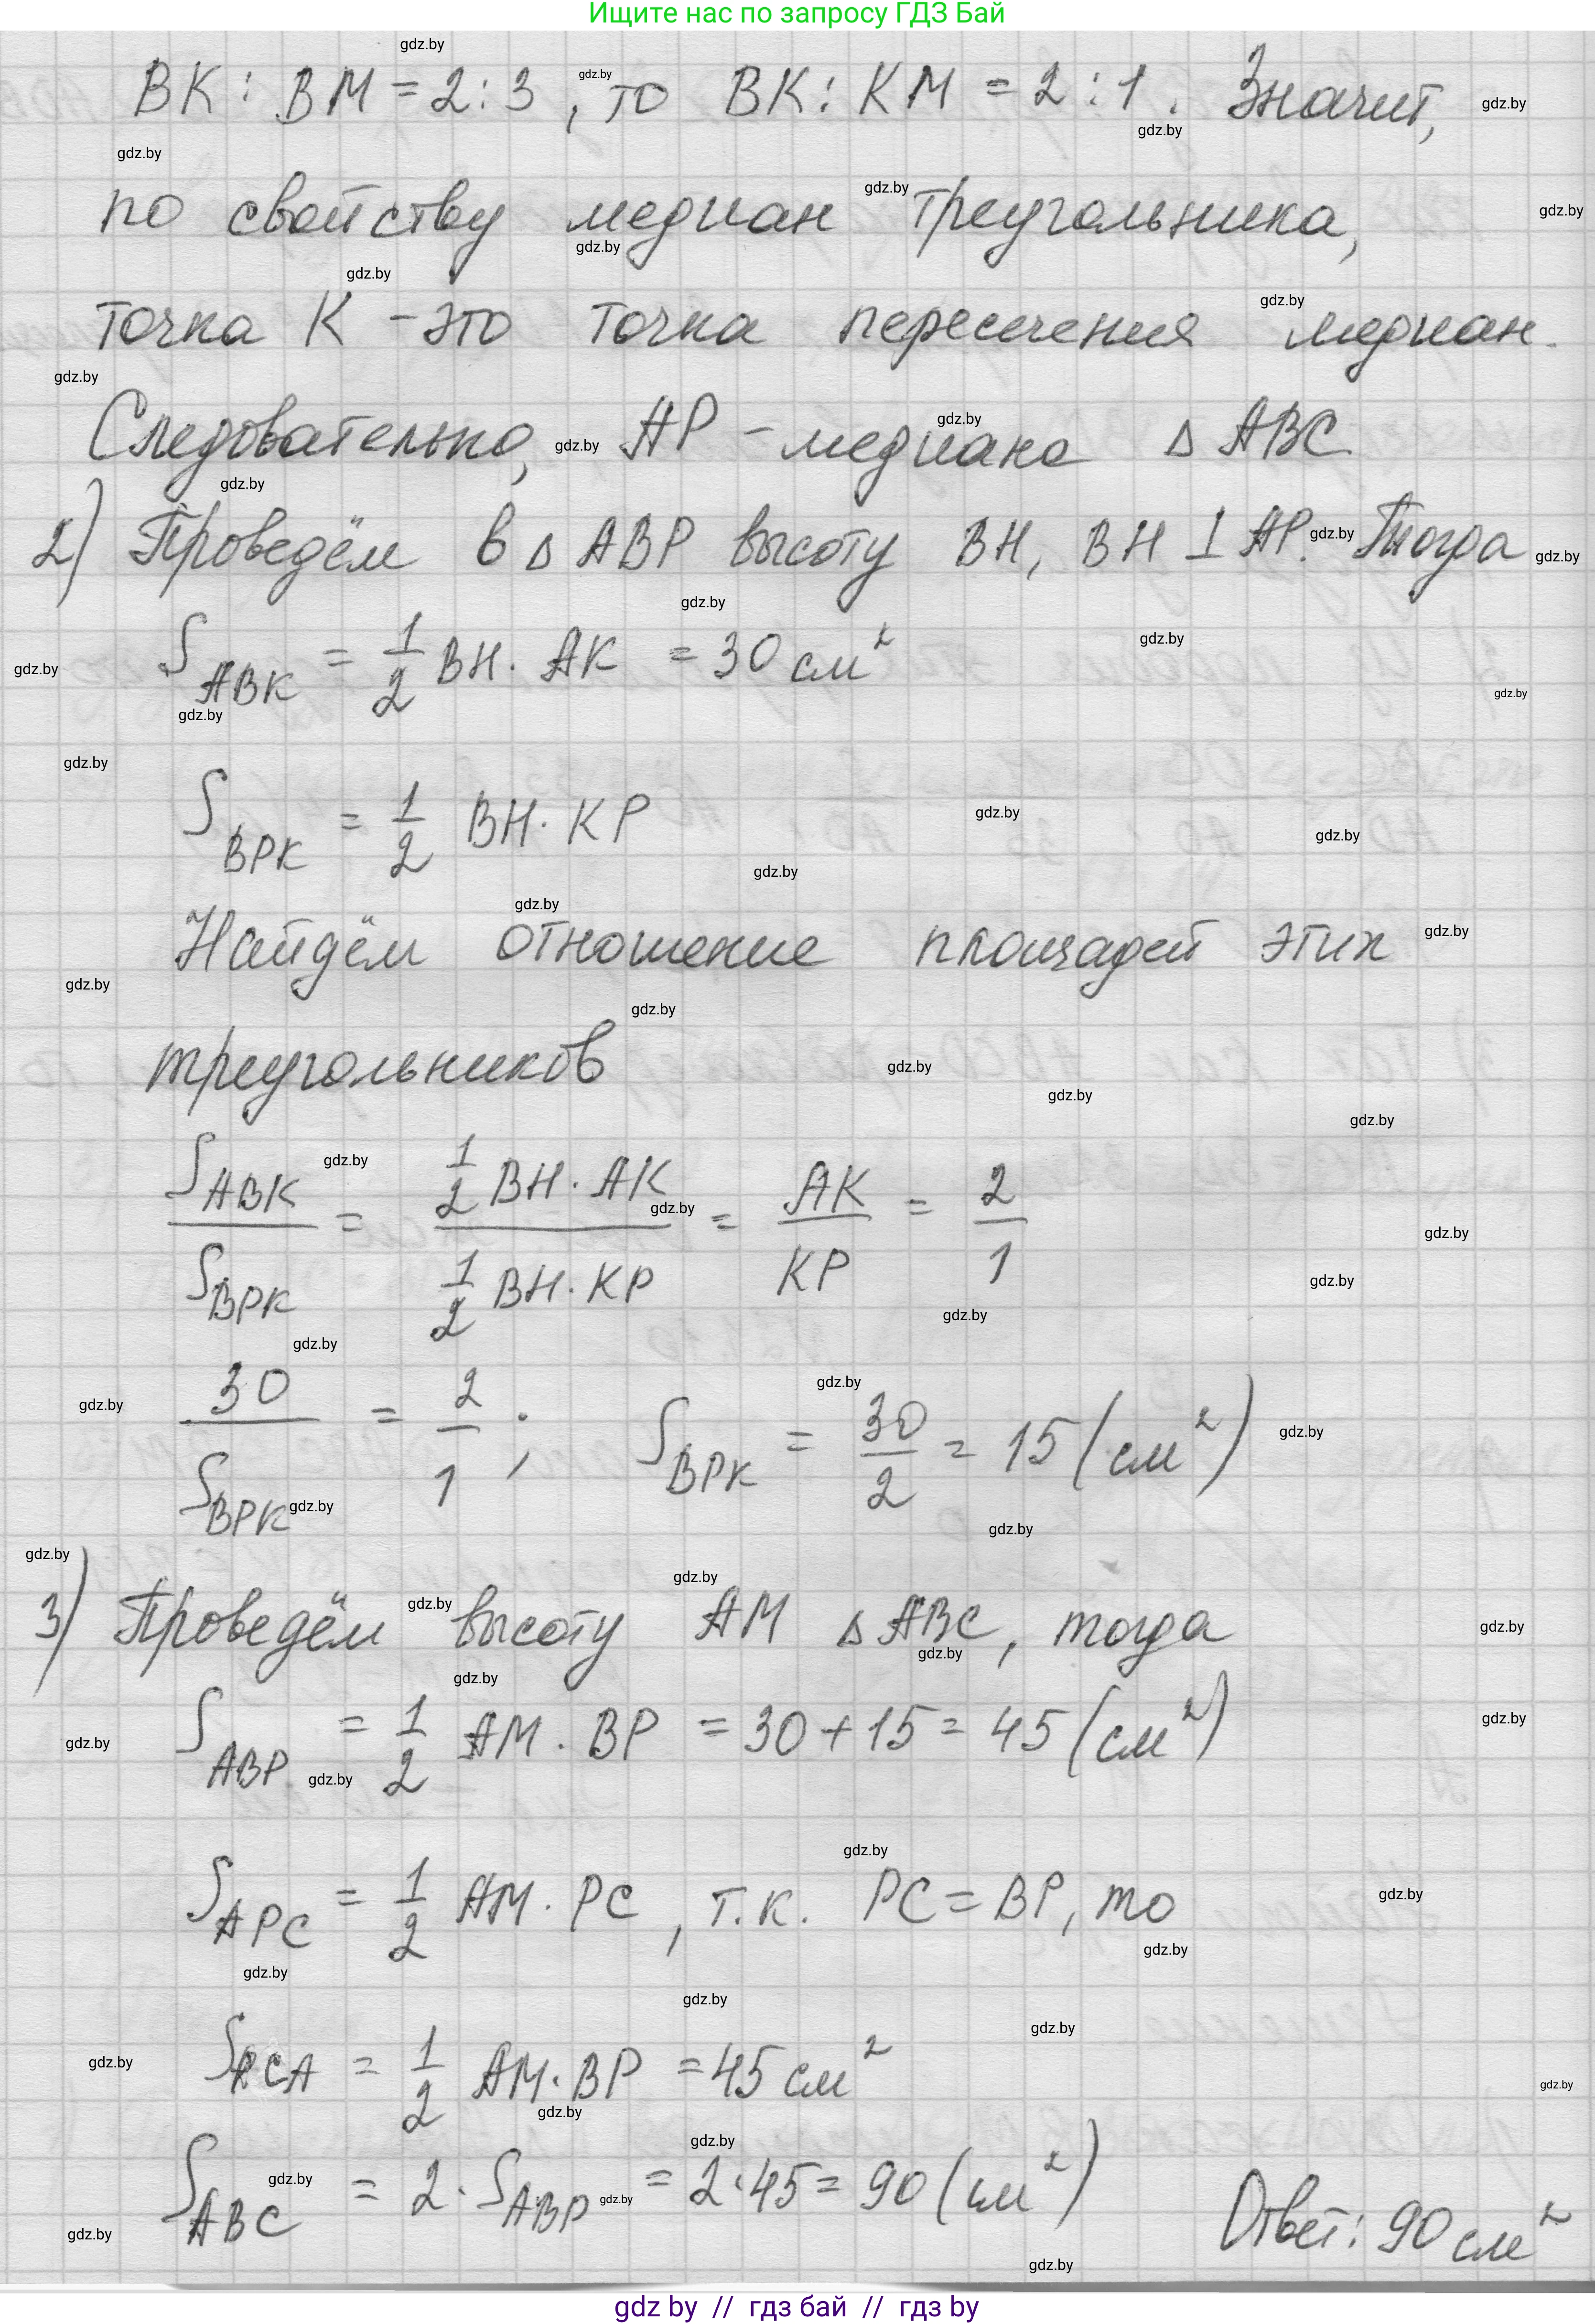 Ищите нас по запросу ГДЗ Бай
BK : BM = 2 : 3, то BK : KM = 2 : 1. Значит,
по свойству медиан треугольника,
точка K - это точка пересечения медиан.
Следовательно, AP - медиана △ ABC
2) Проведём в △ ABP высоту BH, BH ⊥ AP. Тогда
S ABK = 1/2 BH · AK = 30 см²
S BPK = 1/2 BH · KP
Найдём отношение площадей этих
треугольников
S ABK / S BPK = 1/2 BH · AK / 1/2 BH · KP = AK / KP = 2/1
30 / S BPK = 2/1 ; S BPK = 30/2 = 15 (см²)
3) Проведём высоту AM △ ABC, тогда
S ABP = 1/2 AM · BP = 30 + 15 = 45 (см²)
S APC = 1/2 AM · PC, т.к. PC = BP, то
S PCA = 1/2 AM · BP = 45 см²
S ABC = 2 · S ABP = 2 · 45 = 90 (см²)
Ответ: 90 см²
gdz by // гдз бай // гдз by